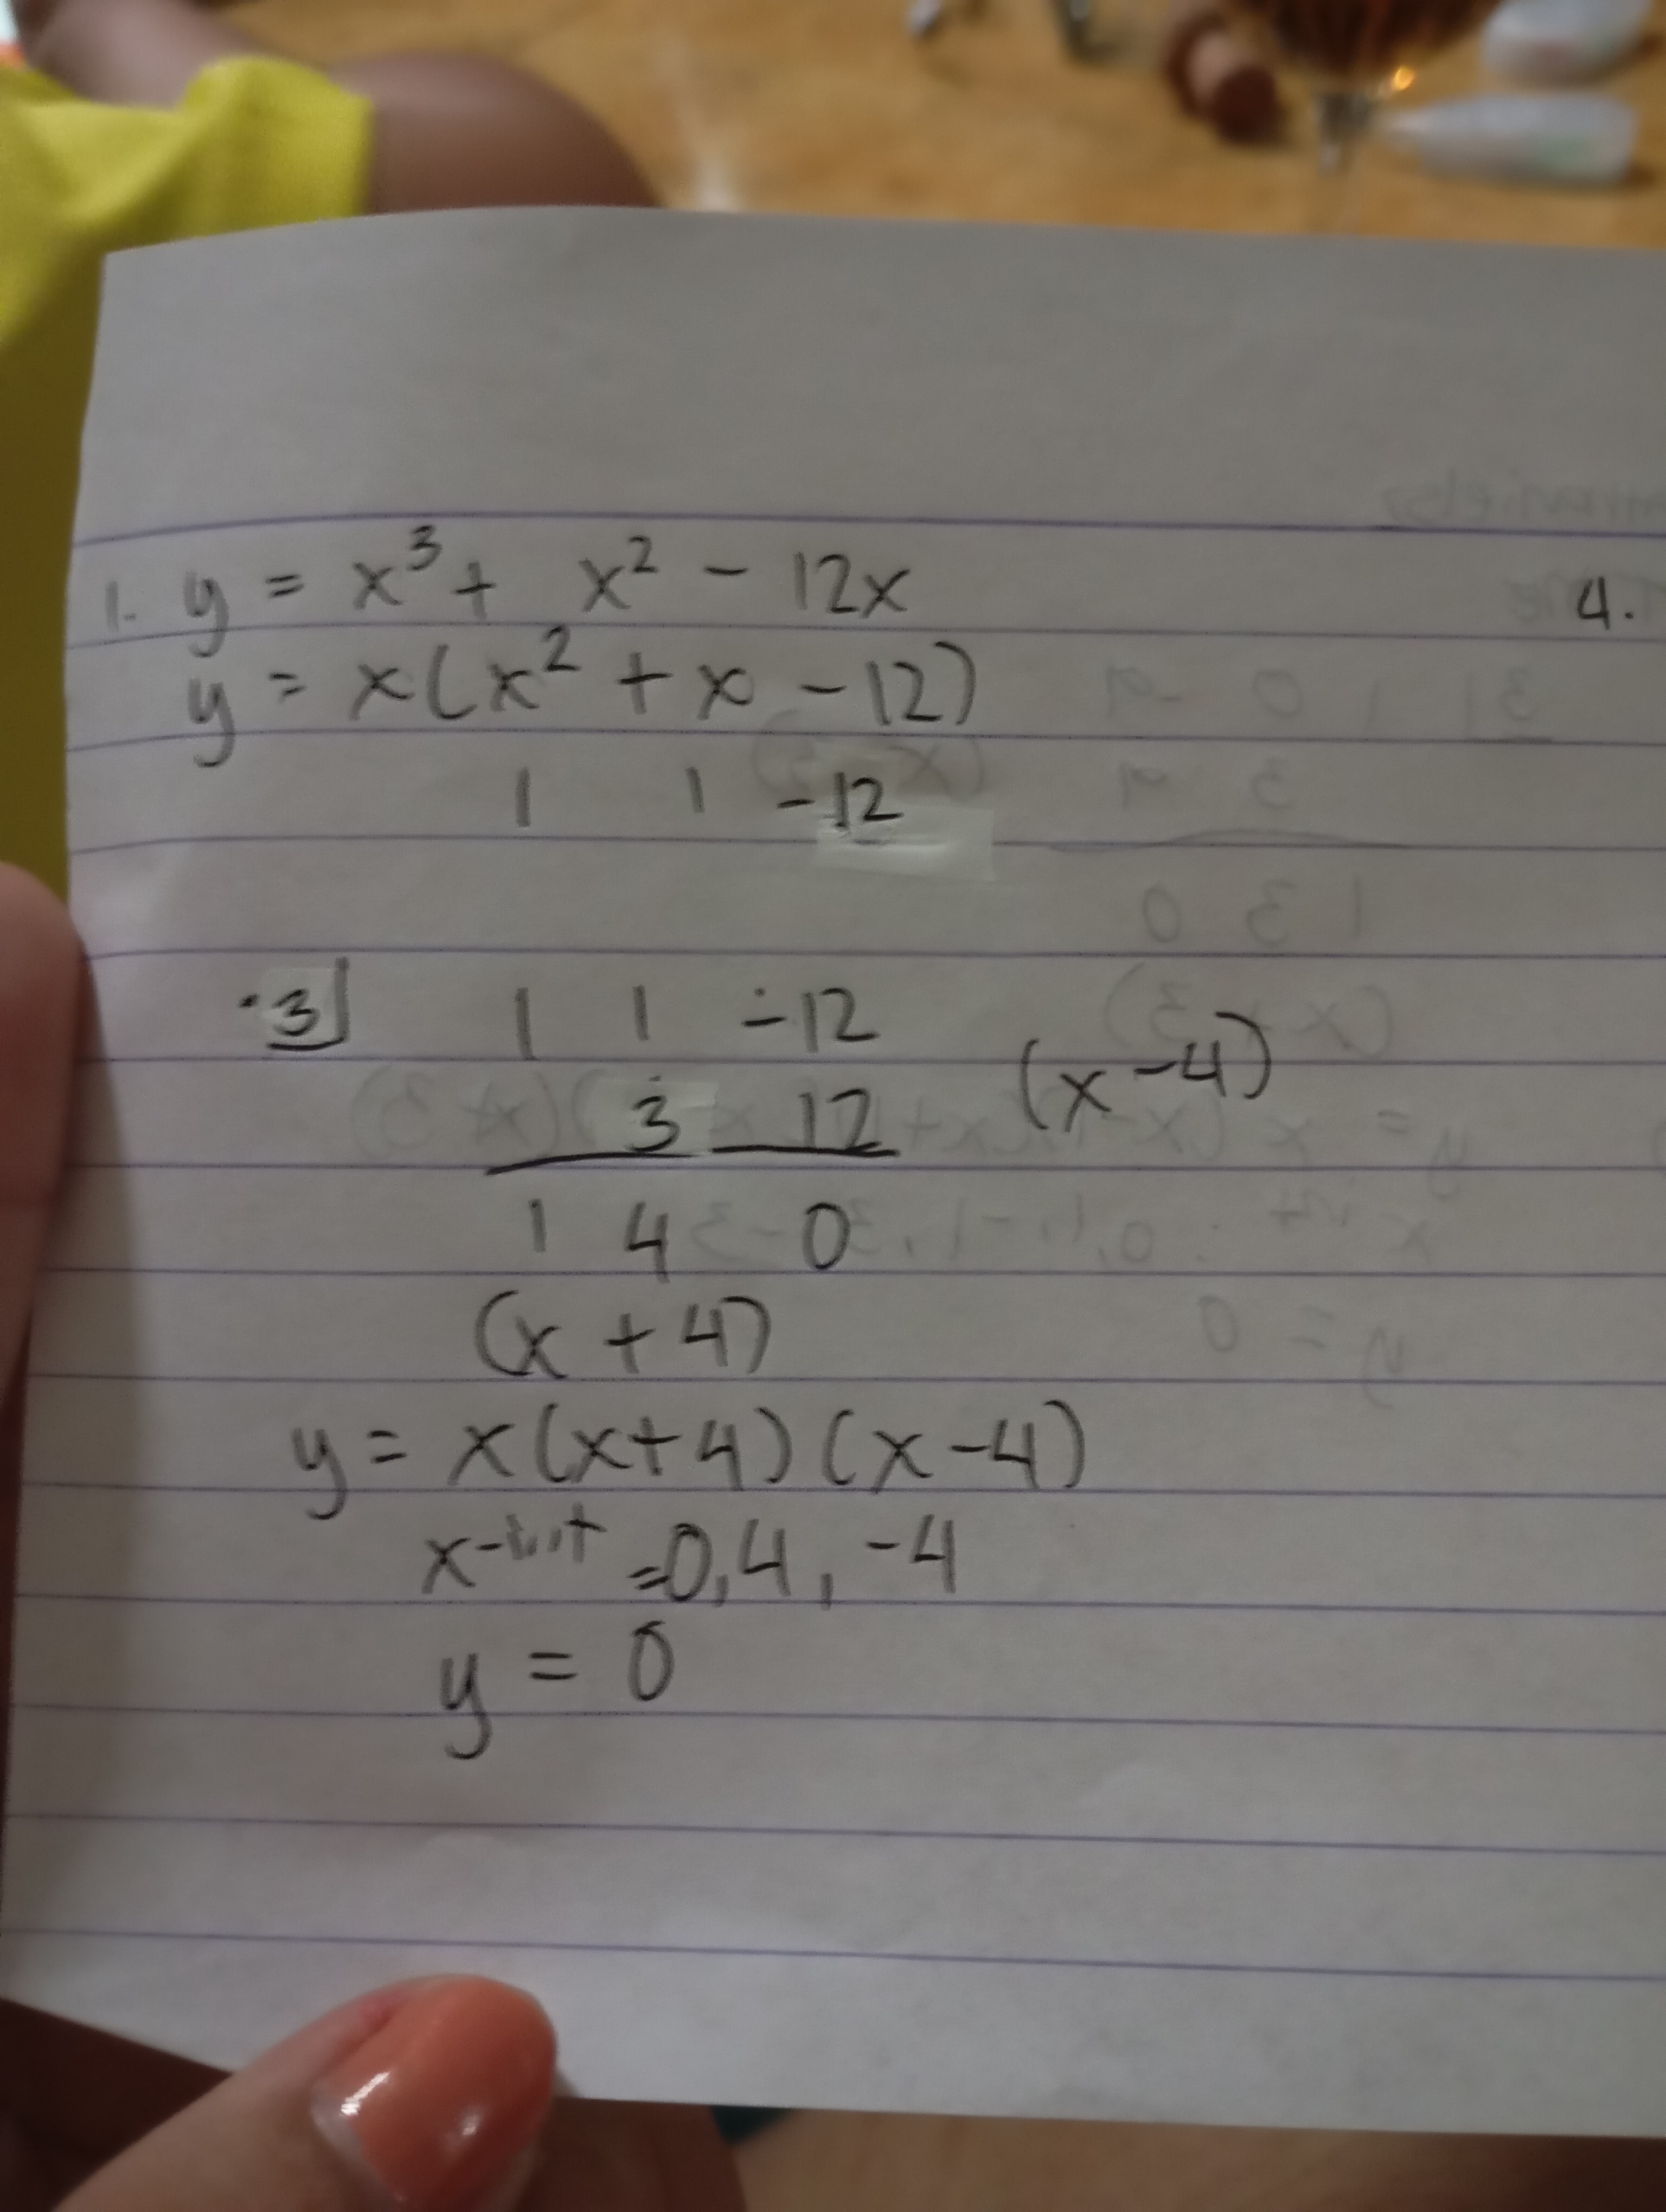 1. y = x³ + x² - 12x
y = x(x² + x - 12)
1 1 -12
3 1 1 -12
3 12 (x-4)
1 4 0
(x + 4)
y = x(x+4)(x-4)
x-int = 0, 4, -4
y = 0
4.